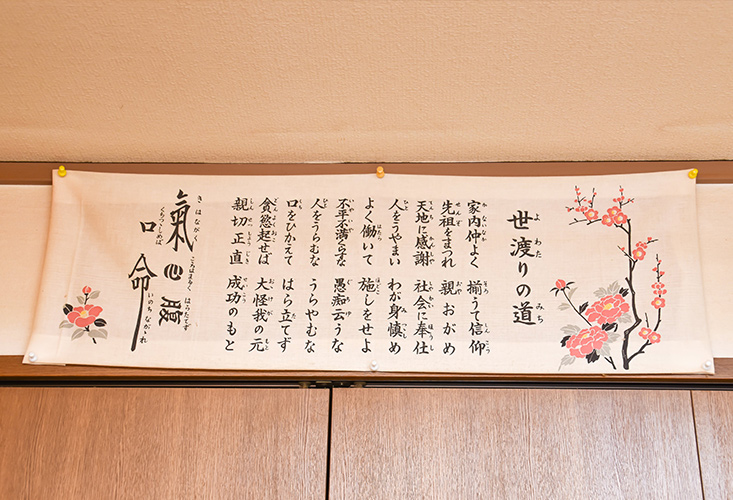 世渡りの道
家内仲よく 揃うて信仰
先祖をまつれ 親おがめ
天地に感謝 社会に奉仕
人をうやまい わが身慎め
よく働いて 施しをせよ
不平不満くらすな 愚痴云うな
人をうらむな うらやむな
口をひかえて はら立てず
貪慾起せば 大怪我の元
親切正直 成功のもと
氣 きはながく
心 こころはまるく
腹 はらたてず
口 くちつつしめば
命 いのちながかれ